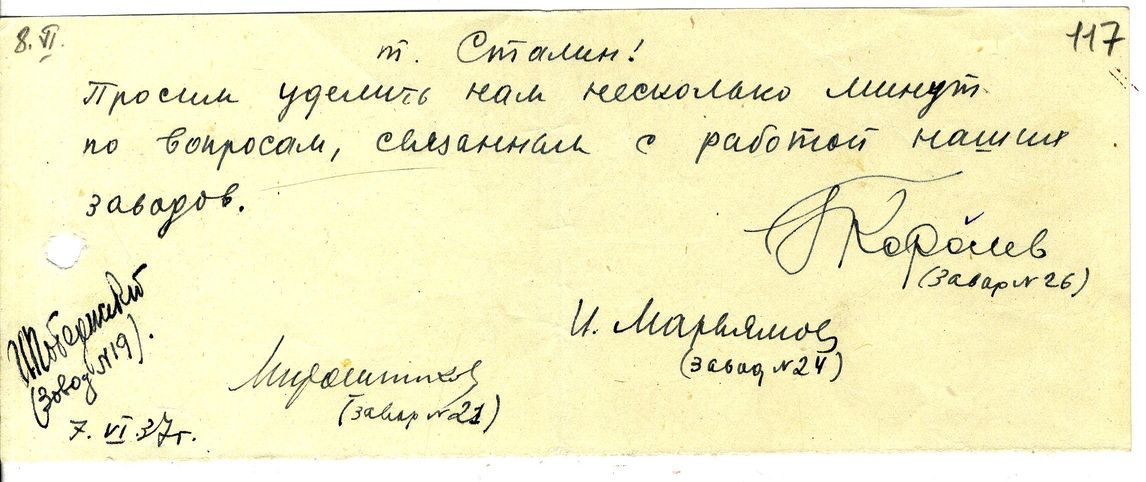 8.VI.
117
т. Сталин!
Просим уделить нам несколько минут
по вопросам, связанным с работой наших
заводов.
Королев
(Завод №26)
И. Марьямов
(завод №24)
Мирошников
(завод №21)
И Побережский
(Завод №19).
7.VI.37г.